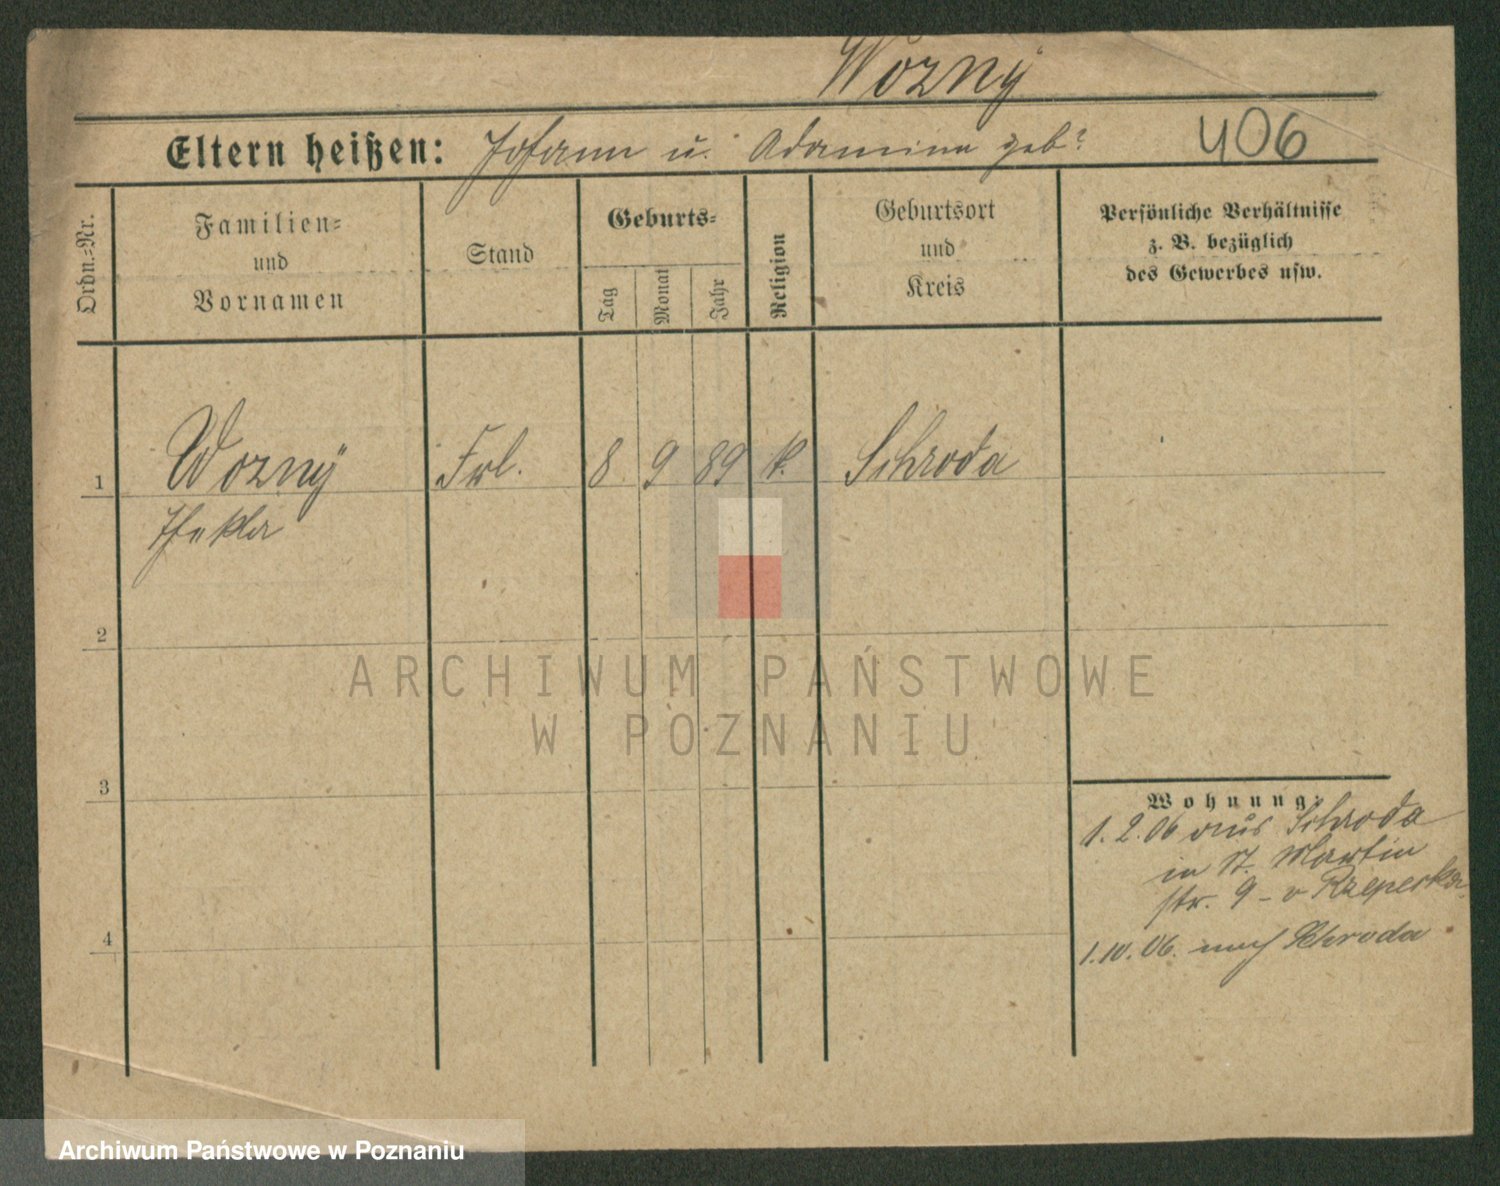 Wozny
Eltern heißen: Johann u. Adamina geb?
406
Ordn.-Nr.
Familien-
und
Vornamen
Stand
Geburts-
Tag
Monat
Jahr
Religion
Geburtsort
und
Kreis
Persönliche Verhältnisse
z. B. bezüglich
des Gewerbes usw.
1 Woznÿ Frl. 8 9 89 k. Schroda
Thekla
2
3
4
Wohnung:
1.2.06 aus Schroda
in St. Martin
str. 9 - v Rzepecka
1.10.06. nach Schroda
ARCHIWUM PAŃSTWOWE
W POZNANIU
Archiwum Państwowe w Poznaniu